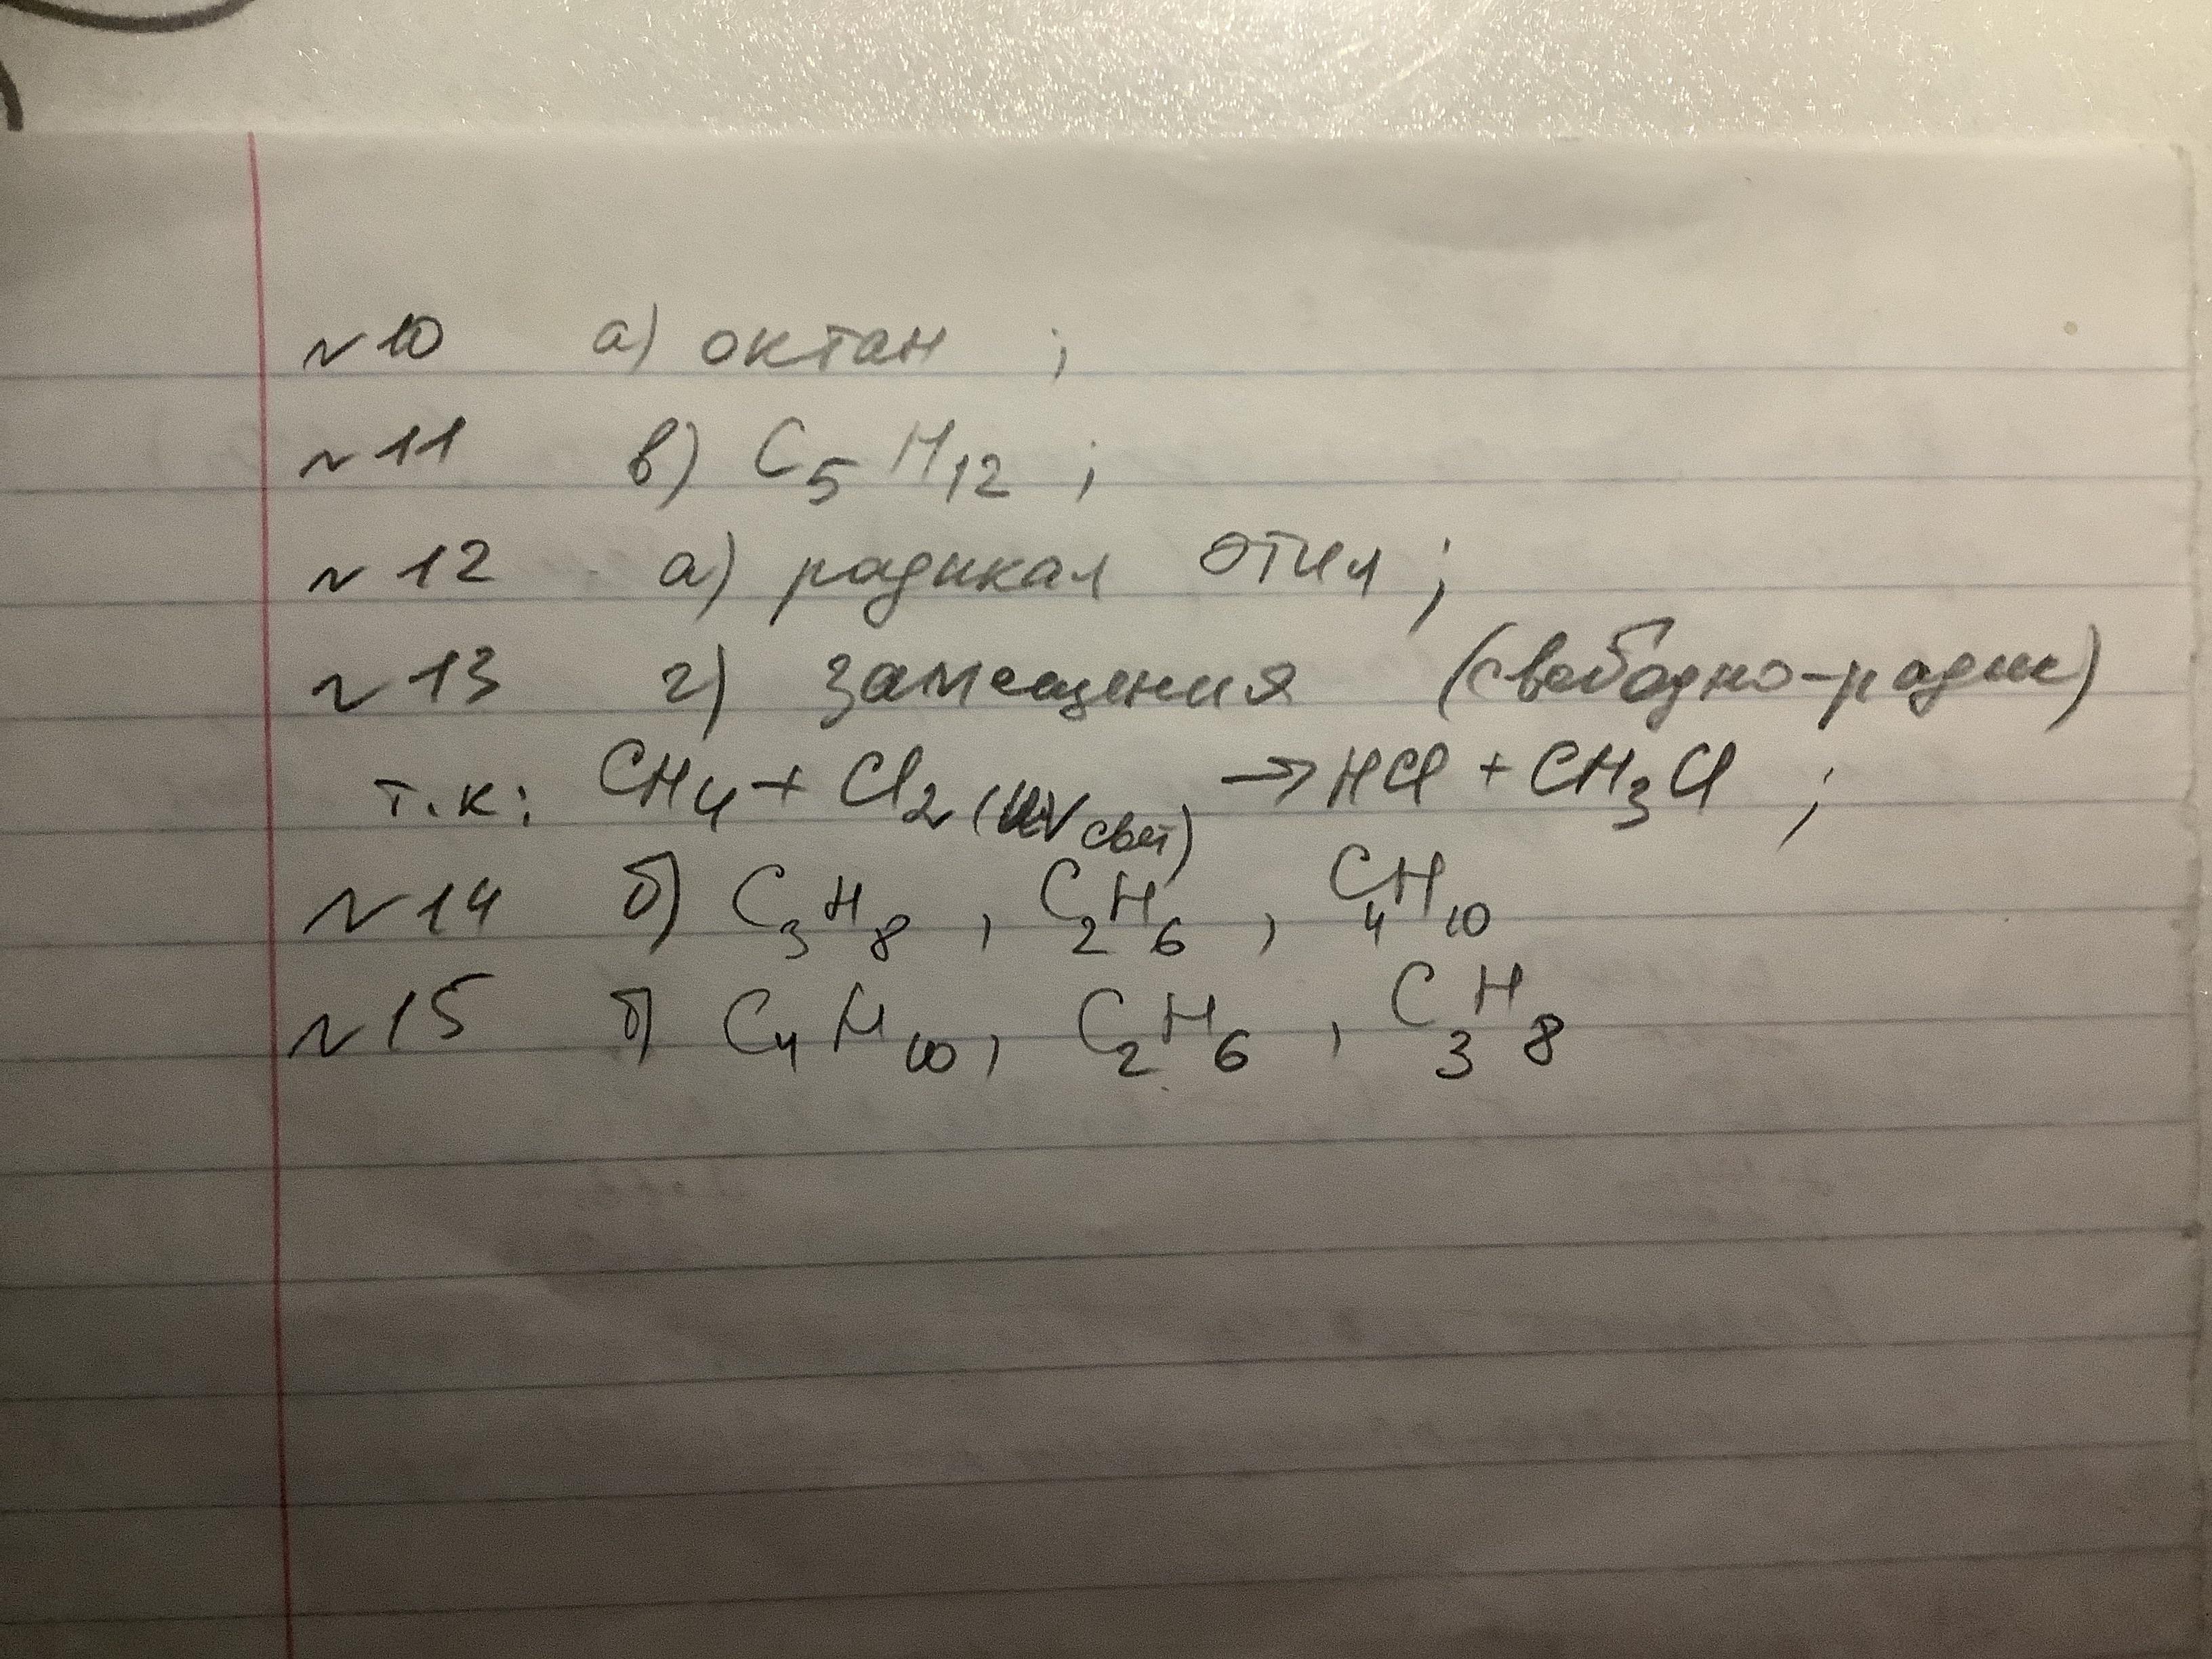 №10 а) октан ;
№11 в) C5H12 ;
№12 а) радикал этил ;
№13 г) замещения (свободно-радик)
т.к: CH4 + Cl2 (UV свет) → HCl + CH3Cl ;
№14 б) C3H8 , C2H6 , C4H10
№15 б) C4H10, C2H6 , C3H8